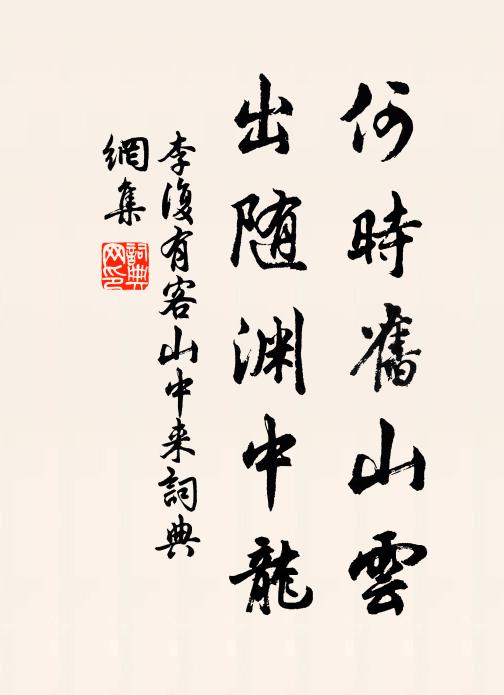 何時舊山雲
出随渊中龍
李復有客山中来詞典
網集
詞典
网印